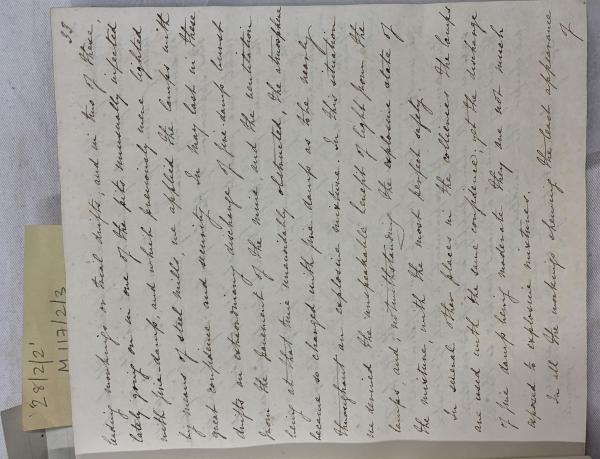 28/2/2'
M 117/2/3
38
leading workings or trial drifts, and in two of these,
lately going on in one of the pits unusually infested
with fire-damp, and which previously were lighted
by means of steel mills, we applied the lamps with
great confidence and security. In May last in these
drifts an extraordinary discharge of fire-damp burst
from the pavement of the mine and the ventilation
being at that time unavoidably obstructed, the atmosphere
became so charged with fire damp as to be nearly
throughout an explosive mixture. In this situation
we derived the unspeakable benefit of light from the
lamps, and, notwithstanding the explosive state of
the mixture, with the most perfect safety.
In several other places in the collieries the lamps
are used with the same confidence; yet the discharge
of fire damp being moderate they are not much
exposed to explosive mixtures.
In all the workings shewing the least appearance
of